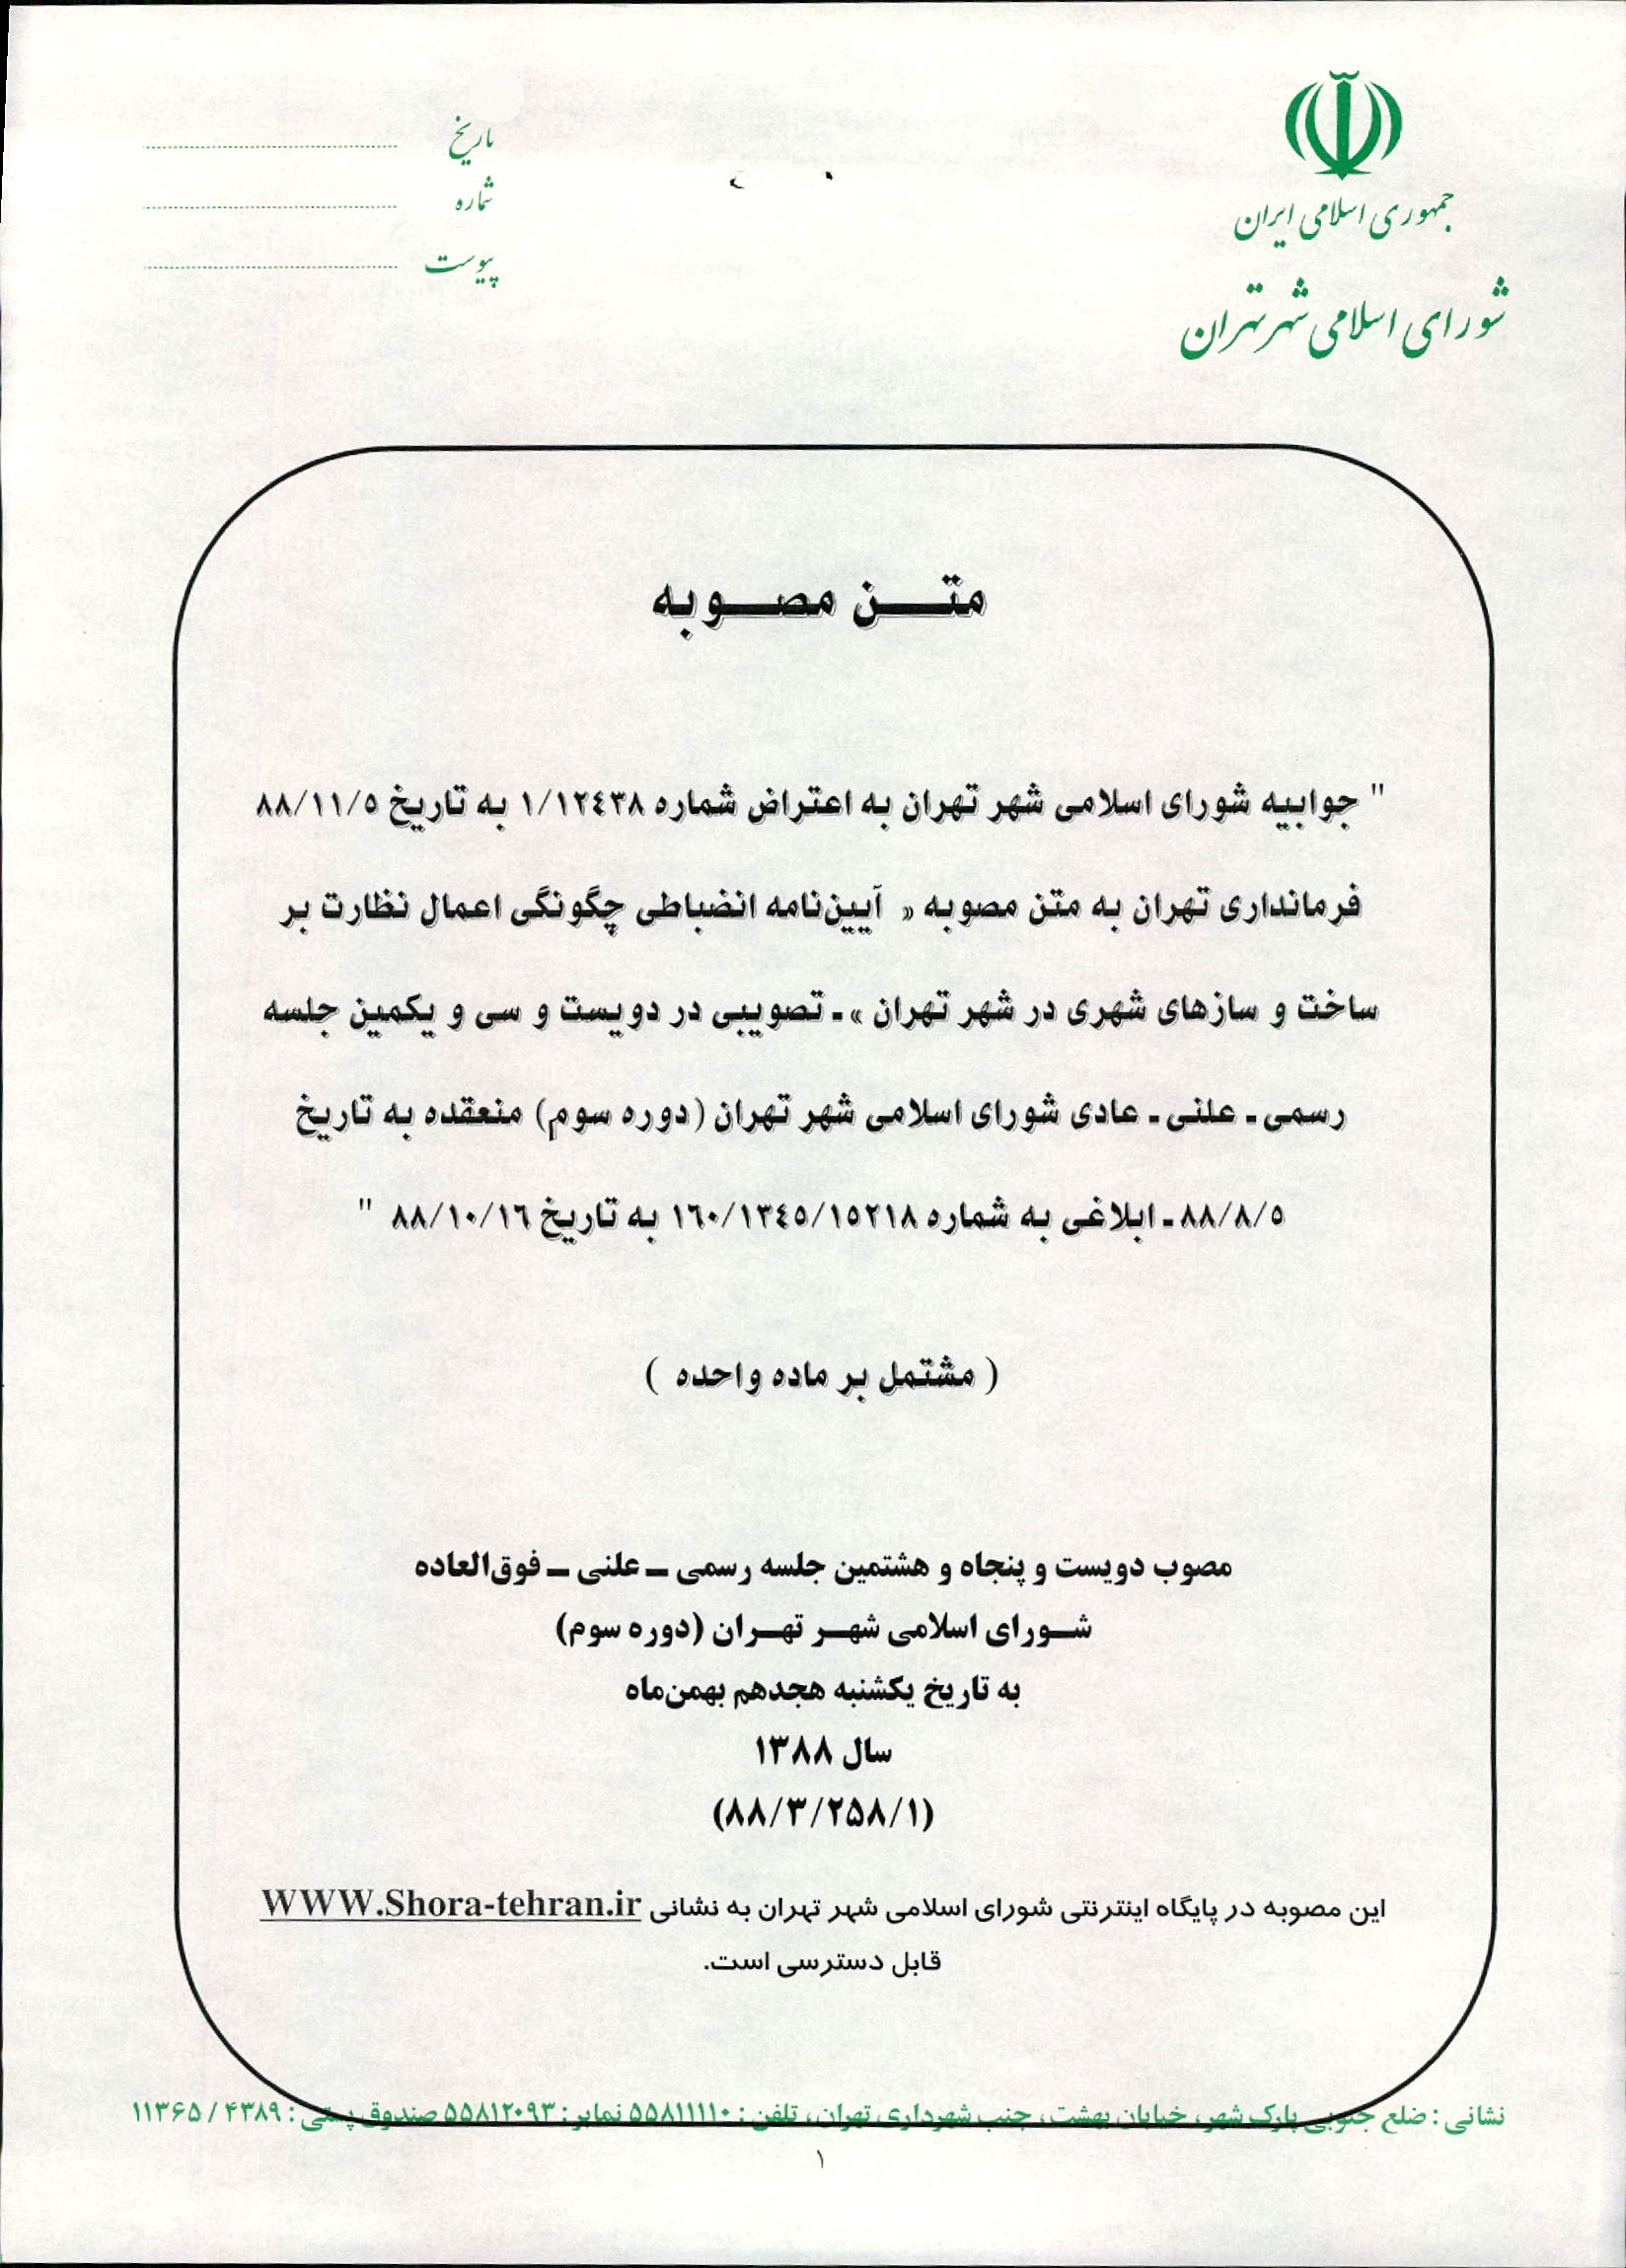 جمهوری اسلامی ایران
شورای اسلامی شهر تهران
تاریخ
شماره
پیوست
متن مصوبه
" جوابیه شورای اسلامی شهر تهران به اعتراض شماره ۱/۱۲٤۳۸ به تاریخ ۸۸/۱۱/۵
فرمانداری تهران به متن مصوبه « آیین‌نامه انضباطی چگونگی اعمال نظارت بر
ساخت و سازهای شهری در شهر تهران »ـ تصویبی در دویست و سی و یکمین جلسه
رسمی ـ علنی ـ عادی شورای اسلامی شهر تهران (دوره سوم) منعقده به تاریخ
۸۸/۸/۵ ـ ابلاغی به شماره ۱٦۰/۱۳٤۵/۱۵۲۱۸ به تاریخ ۸۸/۱۰/۱٦ "
( مشتمل بر ماده واحده )
مصوب دویست و پنجاه و هشتمین جلسه رسمی ــ علنی ــ فوق‌العاده
شورای اسلامی شهر تهران (دوره سوم)
به تاریخ یکشنبه هجدهم بهمن‌ماه
سال ۱۳۸۸
(۸۸/۳/۲۵۸/۱)
این مصوبه در پایگاه اینترنتی شورای اسلامی شهر تهران به نشانی WWW.Shora-tehran.ir
قابل دسترسی است.
نشانی : ضلع جنوبی پارک شهر، خیابان بهشت، جنب شهرداری تهران، تلفن : ۵۵۸۱۱۱۱۰ نمابر : ۵۵۸۱۲۰۹۳ صندوق پستی : ۴۳۸۹ / ۱۱۳۶۵
۱